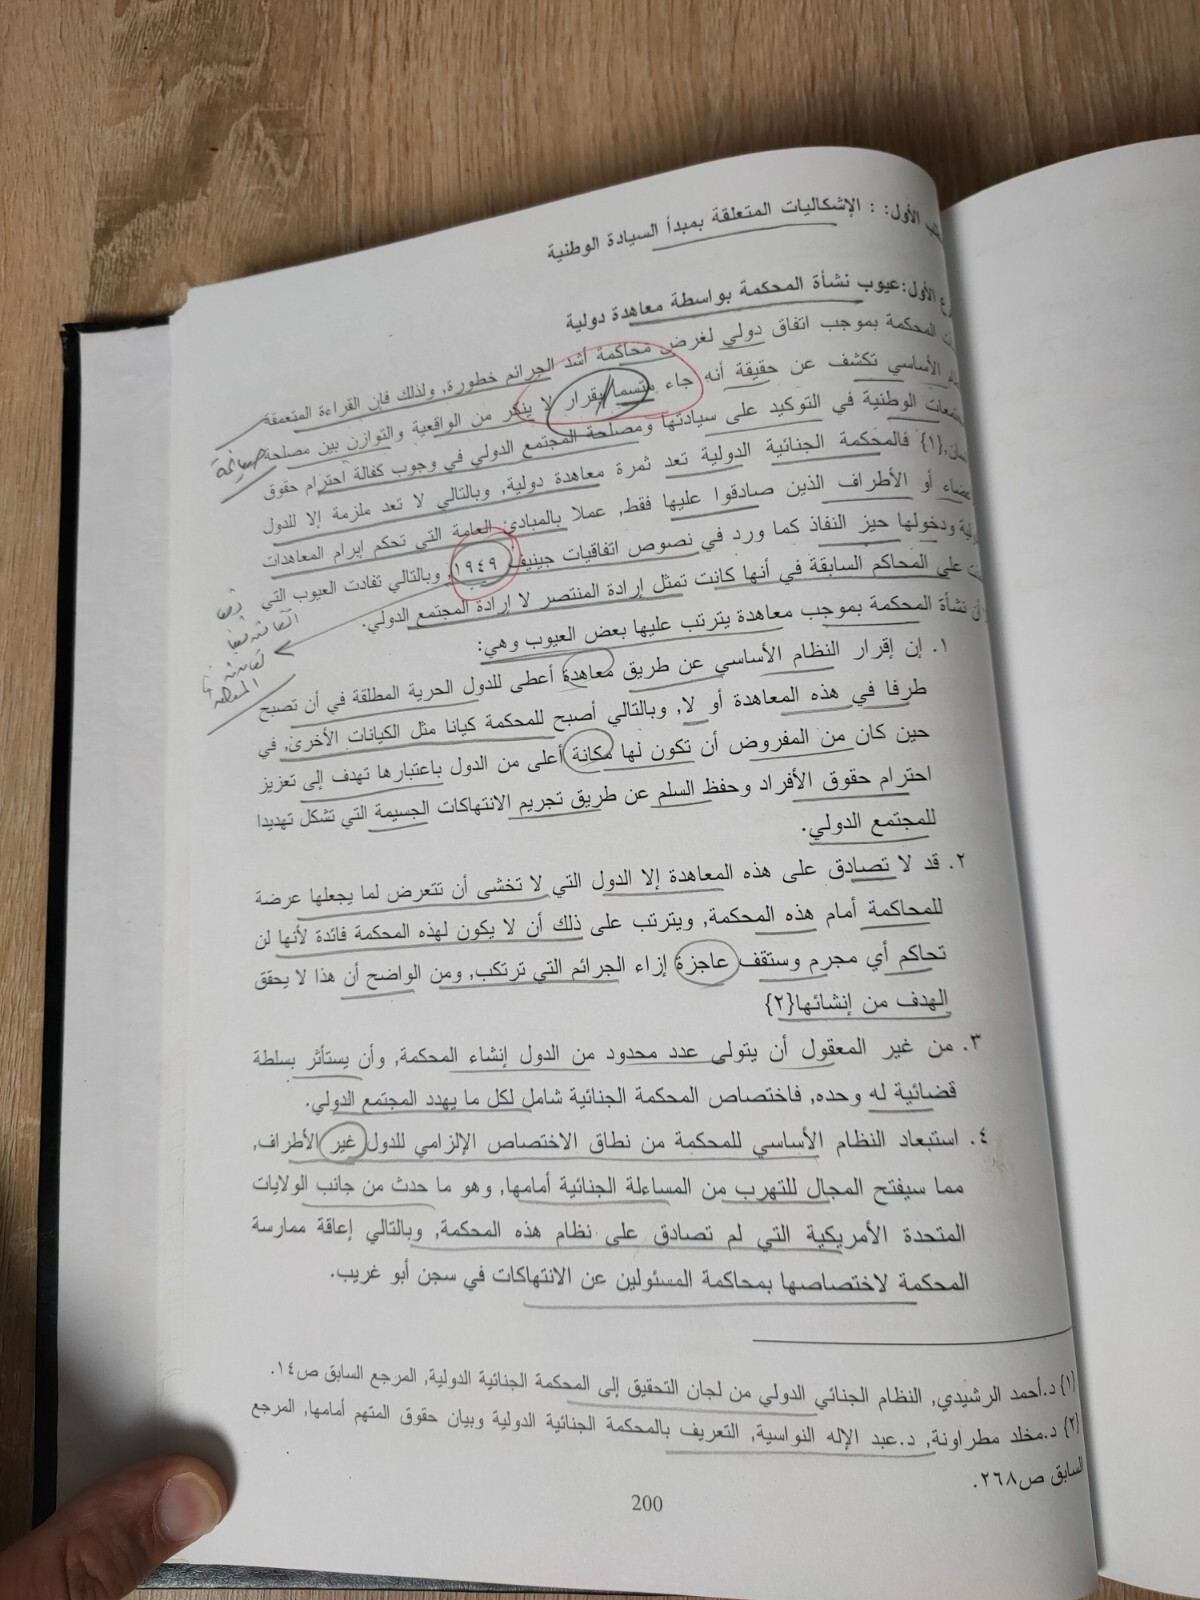 الأول: : الإشكاليات المتعلقة بمبدأ السيادة الوطنية
الأول:عيوب نشأة المحكمة بواسطة معاهدة دولية
المحكمة بموجب اتفاق دولي لغرض محاكمة أشد الجرائم خطورة, ولذلك فإن القراءة المتعمقة
الأساسي تكشف عن حقيقة أنه جاء متسما بقرار لا ينكر من الواقعية والتوازن بين مصلحة
الوطنية في التوكيد على سيادتها ومصلحة المجتمع الدولي في وجوب كفالة احترام حقوق
{١} فالمحكمة الجنائية الدولية تعد ثمرة معاهدة دولية, وبالتالي لا تعد ملزمة إلا للدول
أو الأطراف الذين صادقوا عليها فقط, عملا بالمبادئ العامة التي تحكم إبرام المعاهدات
ودخولها حيز النفاذ كما ورد في نصوص اتفاقيات جينيف ١٩٤٩, وبالتالي تفادت العيوب التي
على المحاكم السابقة في أنها كانت تمثل إرادة المنتصر لا إرادة المجتمع الدولي.
نشأة المحكمة بموجب معاهدة يترتب عليها بعض العيوب وهي:
١. إن إقرار النظام الأساسي عن طريق معاهدة أعطى للدول الحرية المطلقة في أن تصبح
طرفا في هذه المعاهدة أو لا, وبالتالي أصبح للمحكمة كيانا مثل الكيانات الأخرى, في
حين كان من المفروض أن تكون لها مكانة أعلى من الدول باعتبارها تهدف إلى تعزيز
احترام حقوق الأفراد وحفظ السلم عن طريق تجريم الانتهاكات الجسيمة التي تشكل تهديدا
للمجتمع الدولي.
٢. قد لا تصادق على هذه المعاهدة إلا الدول التي لا تخشى أن تتعرض لما يجعلها عرضة
للمحاكمة أمام هذه المحكمة, ويترتب على ذلك أن لا يكون لهذه المحكمة فائدة لأنها لن
تحاكم أي مجرم وستقف عاجزة إزاء الجرائم التي ترتكب, ومن الواضح أن هذا لا يحقق
الهدف من إنشائها{٢}
٣. من غير المعقول أن يتولى عدد محدود من الدول إنشاء المحكمة, وأن يستأثر بسلطة
قضائية له وحده, فاختصاص المحكمة الجنائية شامل لكل ما يهدد المجتمع الدولي.
٤. استبعاد النظام الأساسي للمحكمة من نطاق الاختصاص الإلزامي للدول غير الأطراف,
مما سيفتح المجال للتهرب من المساءلة الجنائية أمامها, وهو ما حدث من جانب الولايات
المتحدة الأمريكية التي لم تصادق على نظام هذه المحكمة, وبالتالي إعاقة ممارسة
المحكمة لاختصاصها بمحاكمة المسئولين عن الانتهاكات في سجن أبو غريب.
{١} د.أحمد الرشيدي, النظام الجنائي الدولي من لجان التحقيق إلى المحكمة الجنائية الدولية, المرجع السابق ص١٤.
{٢} د.مخلد مطراونة, د.عبد الإله النوايسة, التعريف بالمحكمة الجنائية الدولية وبيان حقوق المتهم أمامها, المرجع
السابق ص٢٦٨.
200